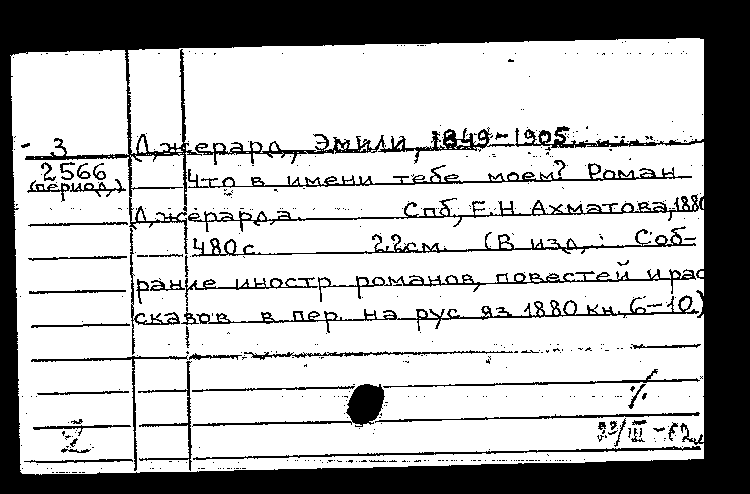 3 Джерард, Эмили, 1849-1905.
2566
(период.) Что в имени тебе моем? Роман
Джерарда. Спб, Е.Н. Ахматова, 1880
480 с. 22 см. (В изд.: Соб-
рание иностр романов, повестей и рас
сказов в пер. на рус яз 1880 кн. 6-10.)